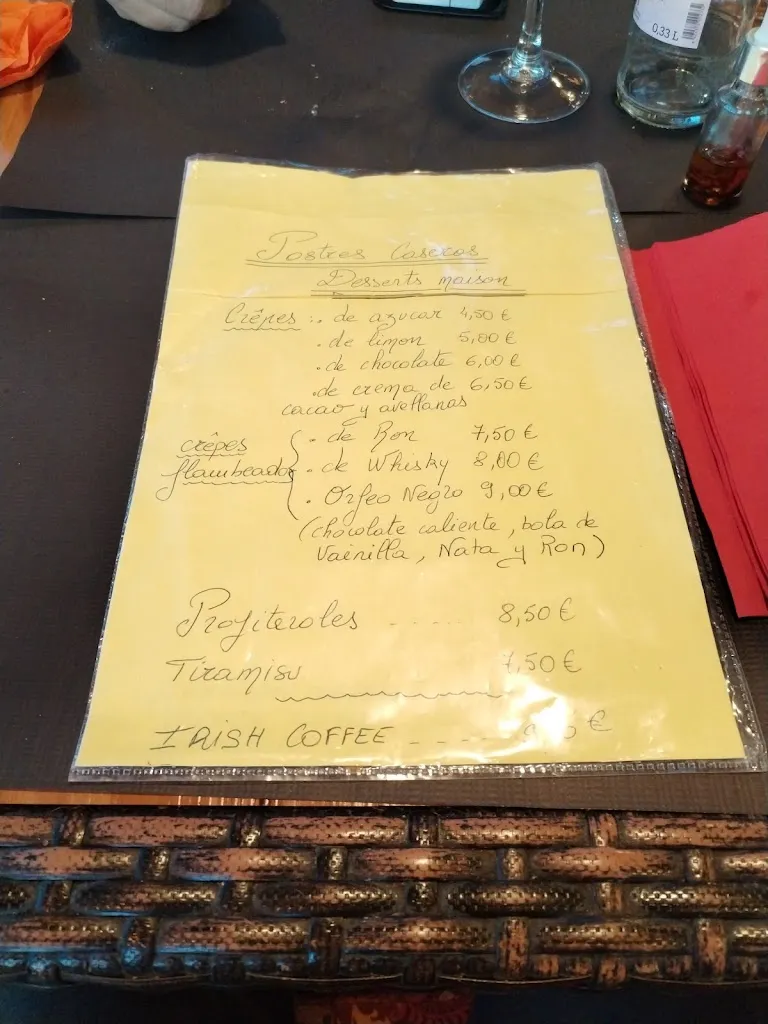 0.33 L
Postres Caseros
Desserts maison
Crêpes : . de azucar 4,50 €
. de limon 5,00 €
. de chocolate 6,00 €
. de crema de 6,50 €
cacao y avellanas
crêpes
flambeados
. de Ron 7,50 €
. de Whisky 8,00 €
. Orfeo Negro 9,00 €
(chocolate caliente, bola de
Vainilla, Nata y Ron)
Profiteroles ..... 8,50 €
Tiramisu 7,50 €
IRISH COFFEE ----- €